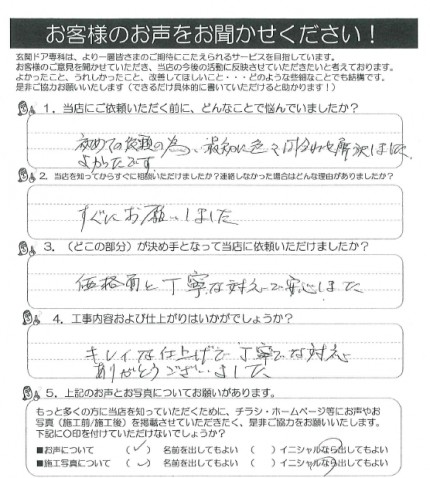 お客様のお声をお聞かせください！
玄関ドア専科は、より一層皆さまのご期待にこたえられるサービスを目指しています。
お客様のご意見を聞かせていただき、当店の今後の活動に反映させていただきたいと考えております。
よかったこと、うれしかったこと、改善してほしいこと・・・どのような些細なことでも結構です。
是非ご協力お願いいたします（できるだけ具体的に書いていただけると助かります！）
1．当店にご依頼いただく前に、どんなことで悩んでいましたか？
初めての依頼の為、最初に色々問合わせ
よかったです
2．当店を知ってからすぐに相談いただけましたか？連絡しなかった場合はどんな理由がありましたか？
すぐにお願いしました
3．（どこの部分）が決め手となって当店に依頼いただけましたか？
価格面と丁寧な対応で安心しました
4．工事内容および仕上がりはいかがでしょうか？
キレイな仕上げで丁寧な対応
ありがとうございました
5．上記のお声とお写真についてお願いがあります。
もっと多くの方に当店を知っていただくために、チラシ・ホームページ等にお声やお
写真（施工前/施工後）を掲載させていただきたく、是非ご協力をお願いいたします。
下記に○印を付けていただけないでしょうか？
■お声について （✓） 名前を出してもよい （ ）イニシャルなら出してもよい
■施工写真について （✓） 名前を出してもよい （ ）イニシャルなら出してもよい